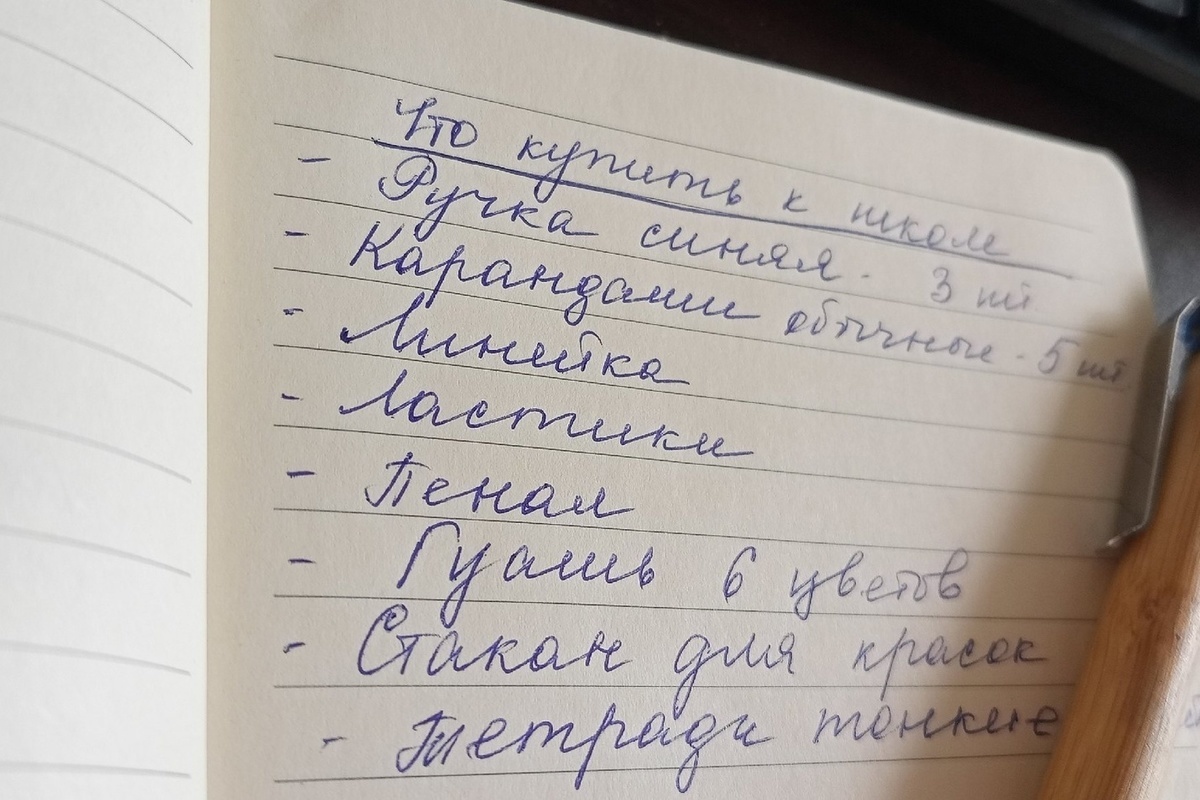 Что купить к школе
- Ручка синяя - 3 шт.
- Карандаши обычные - 5 шт
- Линейка
- Ластики
- Пенал
- Гуашь 6 цветов
- Стакан для красок
- Тетради тонкие